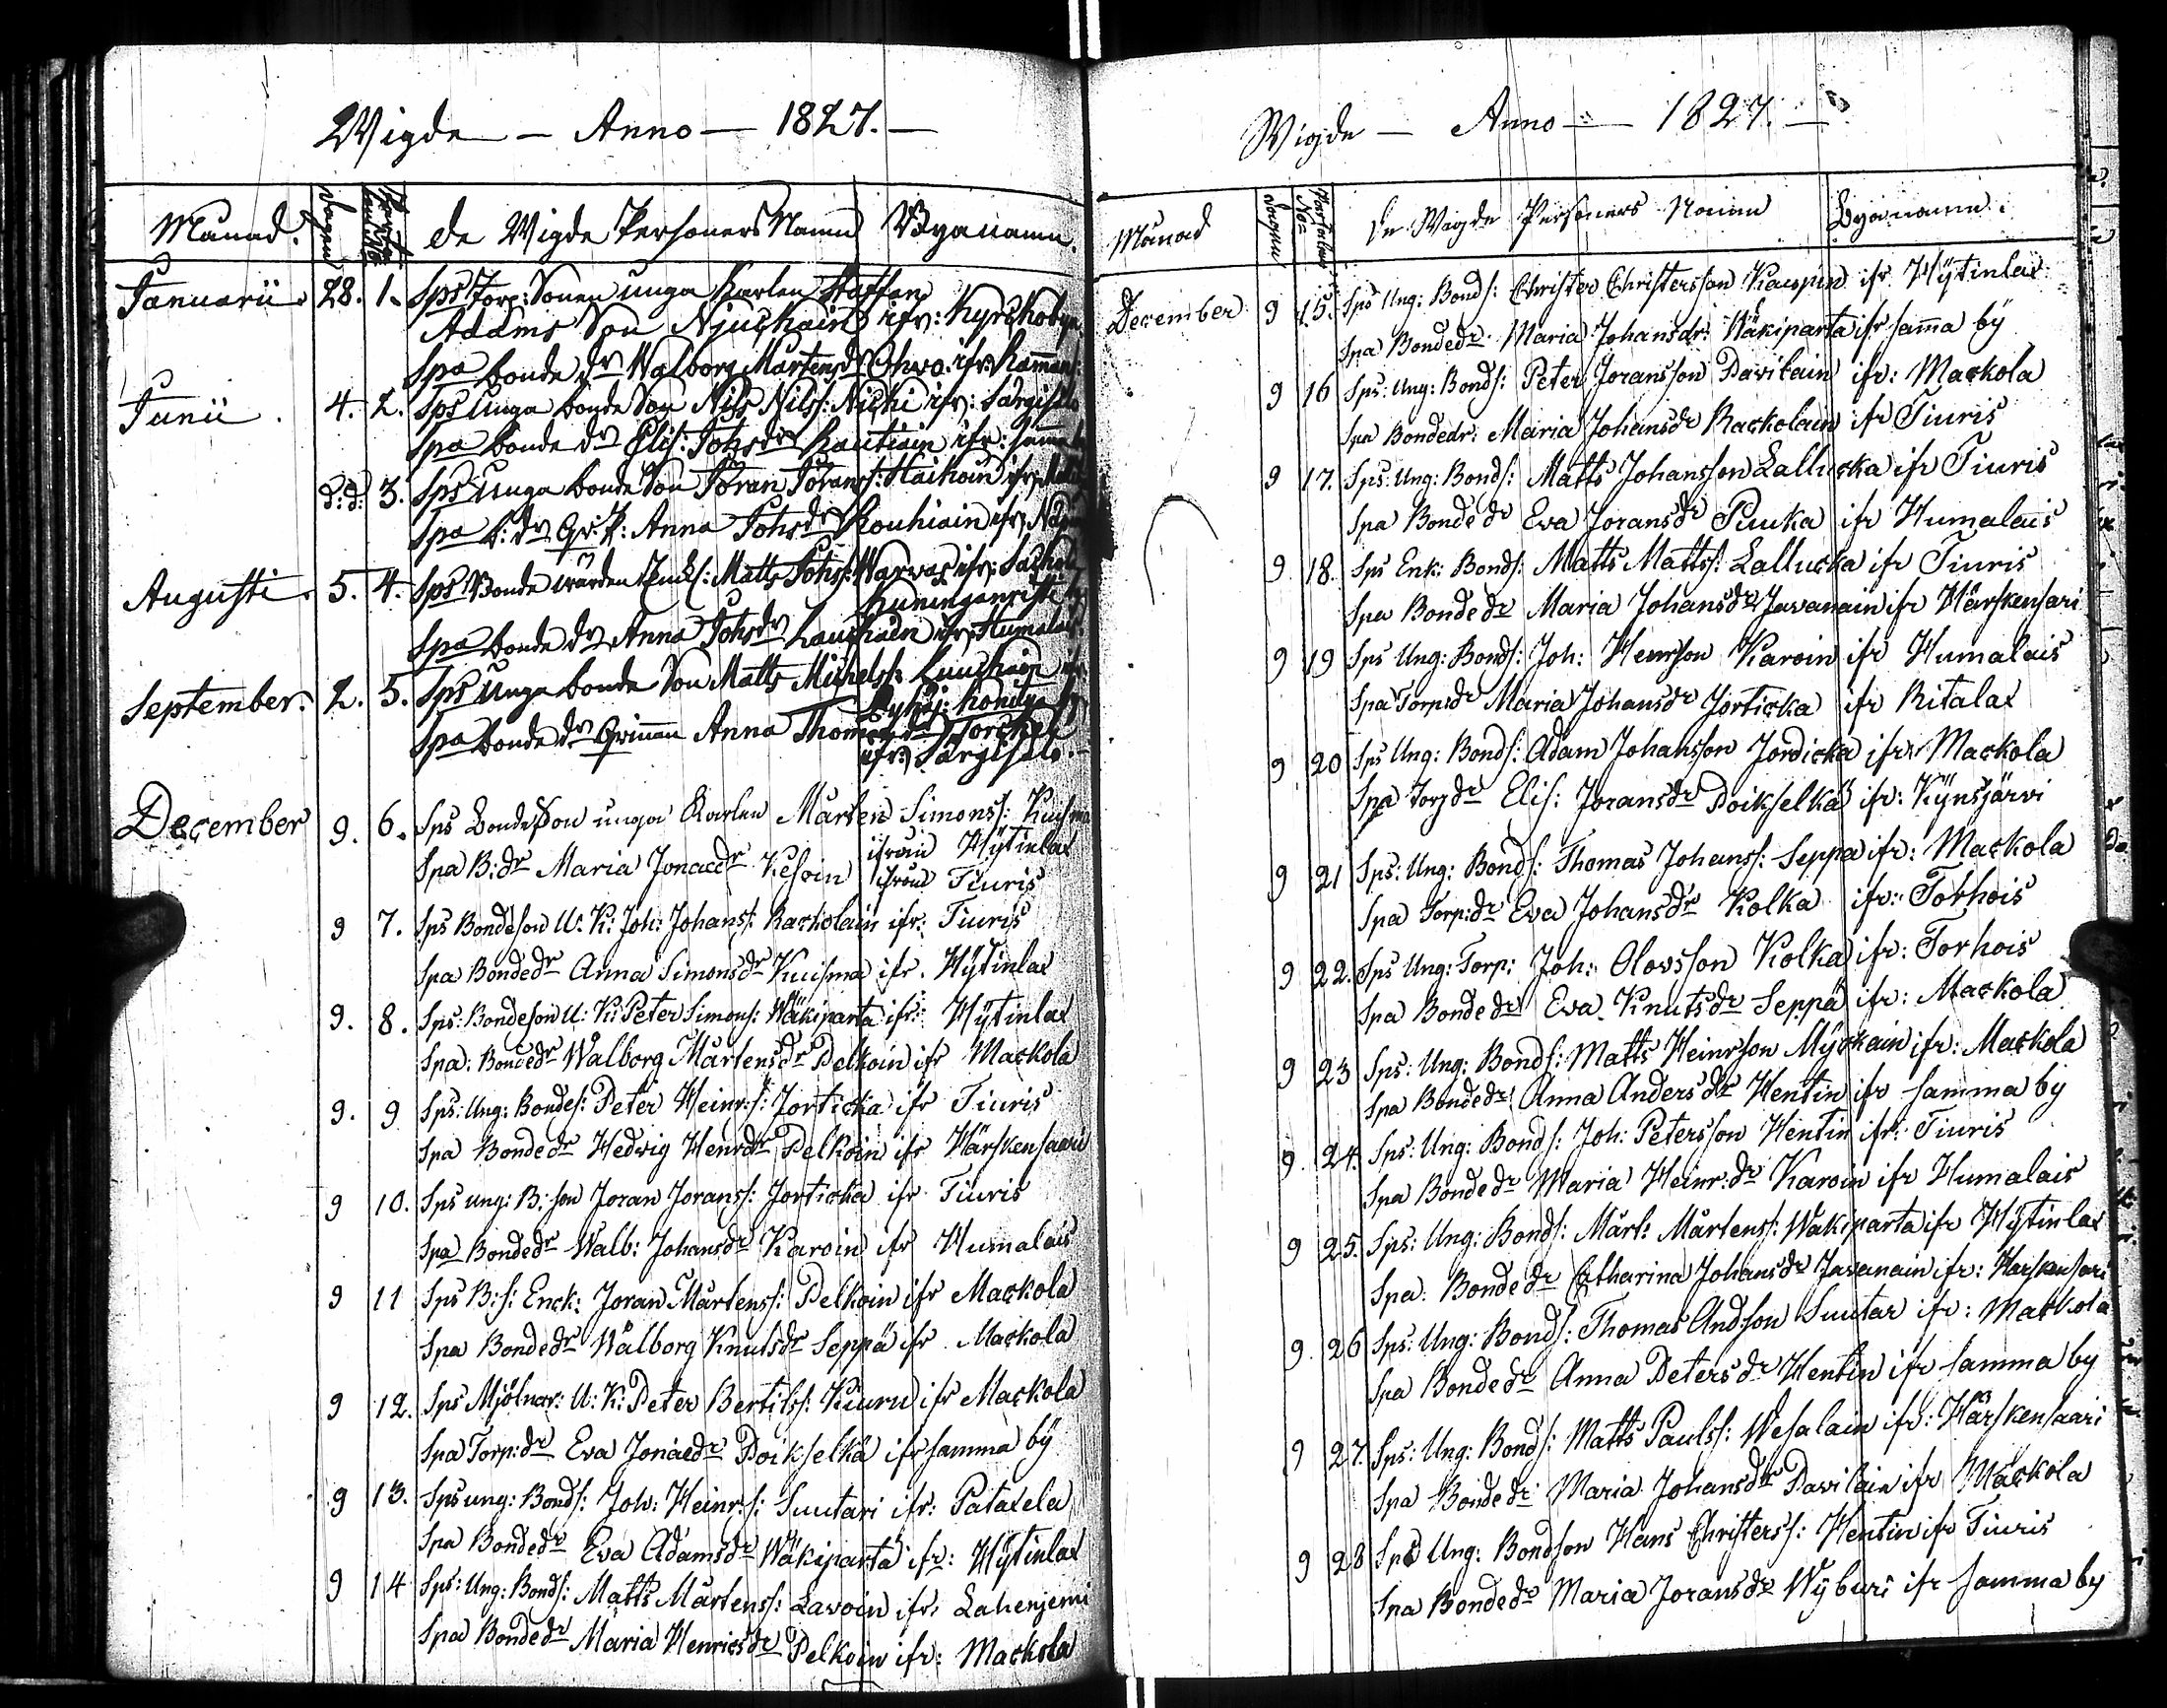 Wigde — Anno — 1827. —
Månad. Dagen De Wigde Personers Namn Byanamn.
Januarii 28. 1. Sps Torp: Sonen unga Karlen Staffan
Adams Son Njuskain ifr: Kyrckoby
Spa bonde dr Walborg Mårtensdr Ohvo ifr:
Junii. 4. 2. Sps Unga bonde Son Nils Nilss: Nicki ifr: Särgisalo
Spa bonde dr Elis: Johsdr Rautiain ifr: samma
d:d: 3. Sps Unga bonde Son Jöran Jöranss: Haikoin ifr:
Spa b: dr Qv: P: Anna Johsdr Rouhiain ifr:
Augusti. 5. 4. Sps Bonde wärden Enckl: Matts Johss: Warvas ifr:
Kuninganristi
Spa bonde dr Anna Johsdr Lauckain ifr: Humalais
September. 2. 5. Sps Unga bonde Son Matts Michelss:
Pyhäj:
Spa bonde dr Qvinnan Anna Thomasdr Torckel
ifr: Särgisalo.
December 9. 6. Sps BondeSon unga Karlen Mårten Simonss: Kuisma
ifrån Hÿtinlax
Spa B: dr Maria Jonaedr Kesoin ifrån Tiuris
9 7. Sps Bondeson U: K: Joh: Johanss: Rackolain ifr: Tiuris
Spa Bondedr Anna Simonsdr Kuisma ifr. Hÿtinlax
9. 8. Sps: Bondeson U: K: Peter Simons: Wäkiparta ifr: Hÿtinlax
Spa: Bondedr Walborg Mårtensdr Pelkoin ifr Mackola
9. 9 Sps: Ung: Bondes: Peter Heinr:s: Jorticka ifr Tiuris
Spa Bondedr Hedvig Henrdr Pelkoin ifr Härskensaari
9 10. Sps ung: B: son Joran Joranss: Jorticka ifr Tiuris
Spa Bondedr Walb: Johansdr Karoin ifr Humalais
9 11 Sps B: s: Enck: Joran Mårtenss: Pelkoin ifr Mackola
Spa Bondedr Walborg Knutsdr Seppä ifr Mackola
9 12. Sps Mjölnar: U: K: Peter Bertilss: Kiuru ifr Mackola
Spa Torp: dr Eva Jonaedr Poikselkä ifr samma bÿ
9 13. Sps ung: Bonds: Joh: Heinr:s: Suutari ifr: Pataxela
Spa Bondedr Eva Adamsdr Wäkiparta ifr: Hÿtinlax
9 14 Sps: Ung: Bonds: Matts Mårtenss: Lavoin ifr: Lahenjemi
Spa Bondedr Maria Henricsdr Pelkoin ifr: Mackola
Wigde — Anno — 1827. —
Månad Dagen No: De Wigde Personers Namn Byanamn.
December 9 15. Sps Ung: Bonds: Christer Christersson Kaupin ifr Hÿtinlax
Spa Bondedr Maria Johansdr: Wäkiparta ifr sam̄a bÿ
9 16 Sps: Ung: Bonds: Peter Joransson Pavilain ifr: Mackola
Spa Bondedr: Maria Johansdr Rackolain ifr Tiuris
9 17. Sps: Ung: Bonds: Matts Johansson Lallucka ifr Tiuris
Spa Bondedr Eva Joransdr Puuka ifr Humalais
9. 18. Sps Enk: Bonds: Matts Mattss: Lallucka ifr Tiuris
Spa Bondedr Maria Johansdr Javanain ifr Härskensari
9 19 Sps Ung: Bonds: Joh: Henrson Karoin ifr Humalais
Spa Torpsdr Maria Johansdr Jorticka ifr Ritalax
9 20 Sps Ung: Bonds: Adam Johansson Jordicka ifr Mackola
Spa Torpdr Elis: Joransdr Poikselkä ifr: Kÿnsjärvi
9 21 Sps: Ung: Bonds: Thomas Johanss: Seppä ifr: Mackola
Spa Torp: dr Eva Johansdr Kolka ifr: Torhois
9 22. Sps Ung: Torp: Joh: Olovsson Kolka ifr: Torhois
Spa Bondedr Eva Knutsdr Seppä ifr: Mackola
9 23 Sps: Ung: Bonds: Matts Heinrson Mÿckain ifr: Mackola
Spa Bondedr Anna Andersdr Hentin ifr samma by
9. 24. Sps: Ung: Bonds: Joh: Petersson Hentin ifr: Tiuris
Spa Bondedr Maria Heinr: dr Karoin ifr Humalais
9 25. Sps: Ung: Bonds: Mårt: Mårtens: Wäkiparta ifr Hÿtinlax
Spa: Bondedr Catharina Johansdr Javanain ifr: Härskensari
9. 26 Sps: Ung: Bonds: Thomas Andson Suutar ifr: Mackola
Spa Bondedr Anna Petersdr Hentin ifr samma by
9 27. Sps: Ung: Bonds: Matts Paulss: Wesalain ifr: Härskensaari
Spa Bondedr Maria Johansdr Pavilain ifr Mackola
9 28 Sps Ung: Bondson Hans Christerss: Hentin ifr Tiuris
Spa Bondedr Maria Joransdr Wÿburi ifr samma by